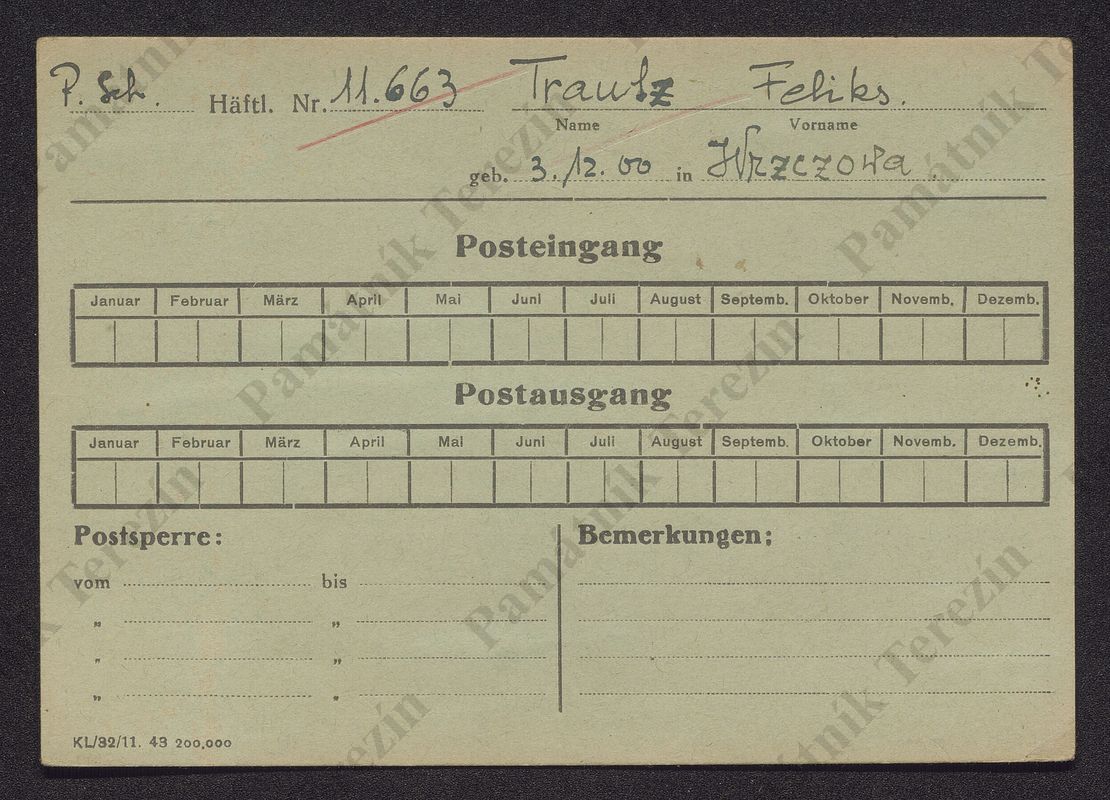 P. Sch. Häftl. Nr. 11.663 Trautz Feliks.
Name Vorname
geb. 3./12. 00 in Wrzczowa.
Posteingang
Januar Februar März April Mai Juni Juli August Septemb. Oktober Novemb. Dezemb.
Postausgang
Januar Februar März April Mai Juni Juli August Septemb. Oktober Novemb. Dezemb.
Postsperre: Bemerkungen:
vom bis
" "
" "
" "
KL/32/11. 43 200,000
Památník Terezín